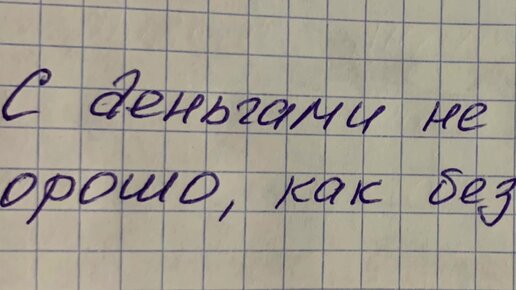 С деньгами не
орошо, как без